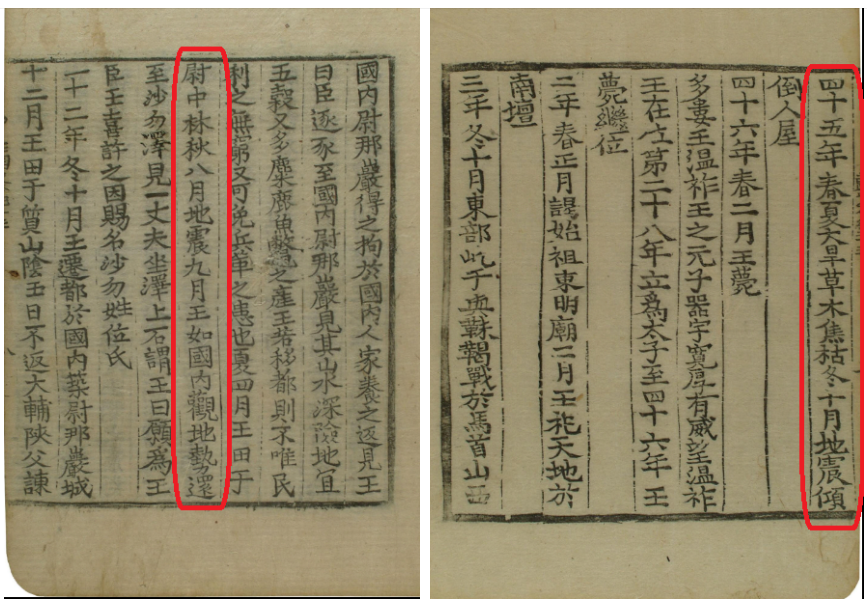 國內尉那巖得之拘於國內人家養之返見王
曰臣逐豕至國內尉那巖見其山水深險地宜
五穀又多麋鹿魚鼈之産王若移都則不唯民
利之無窮又可免兵革之患也夏四月王田于
尉中林秋八月地震九月王如國內觀地勢還
至沙勿澤見一丈夫坐澤上石謂王曰願爲王
臣王喜許之因賜名沙勿姓位氏
二十二年冬十月王遷都於國內築尉那巖城
十二月王田于質山陰五日不返大輔陜父諫
四十五年春夏大旱草木焦枯冬十月地震傾
倒人屋
四十六年春二月王薨
多婁王溫祚王之元子器宇寬厚有威望溫祚
王在位第二十八年立爲太子至四十六年王
薨繼位
二年春正月謁始祖東明廟二月王祀天地於
南壇
三年冬十月東部屹于與靺鞨戰於馬首山西